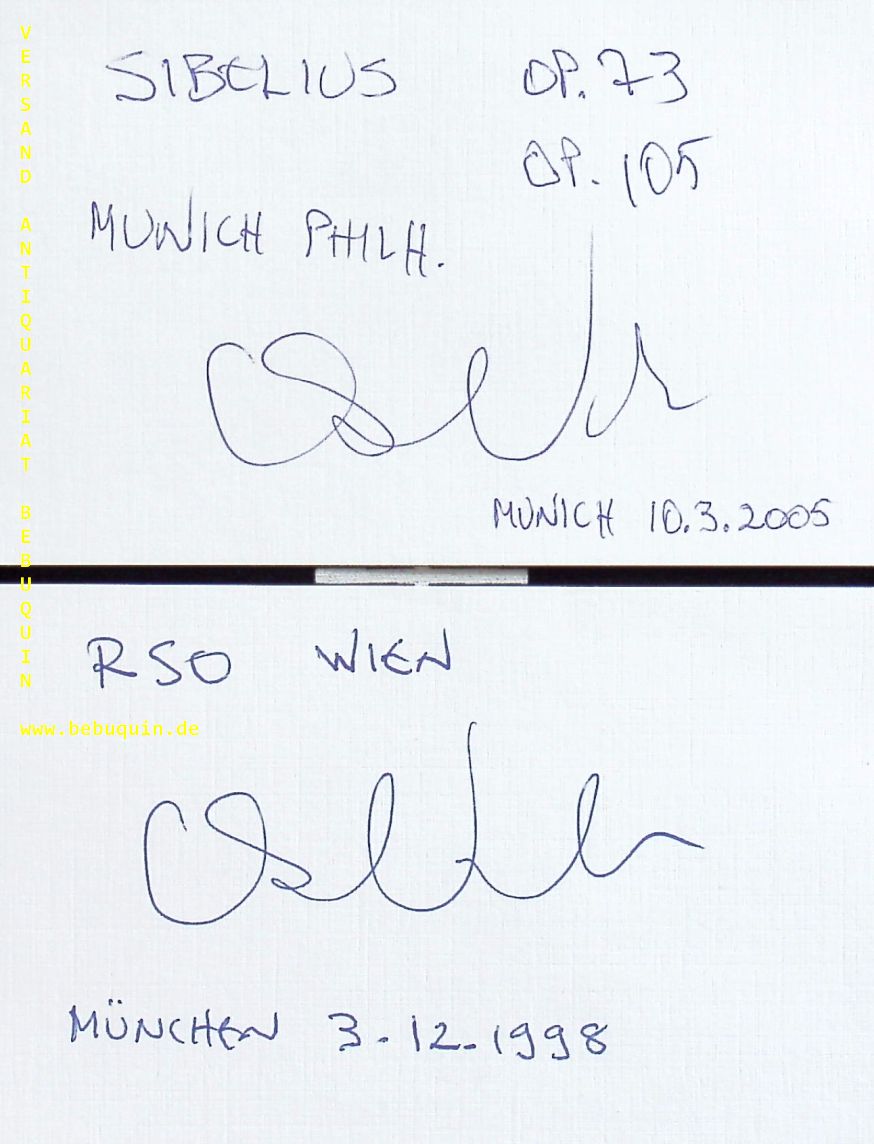 SIBELIUS OP. 73
OP. 105
MUNICH PHILH.
MUNICH 10.3.2005
RSO WIEN
MÜNCHEN 3-12-1998
VERSAND ANTIQUARIAT BEBUQUIN
www.bebuquin.de